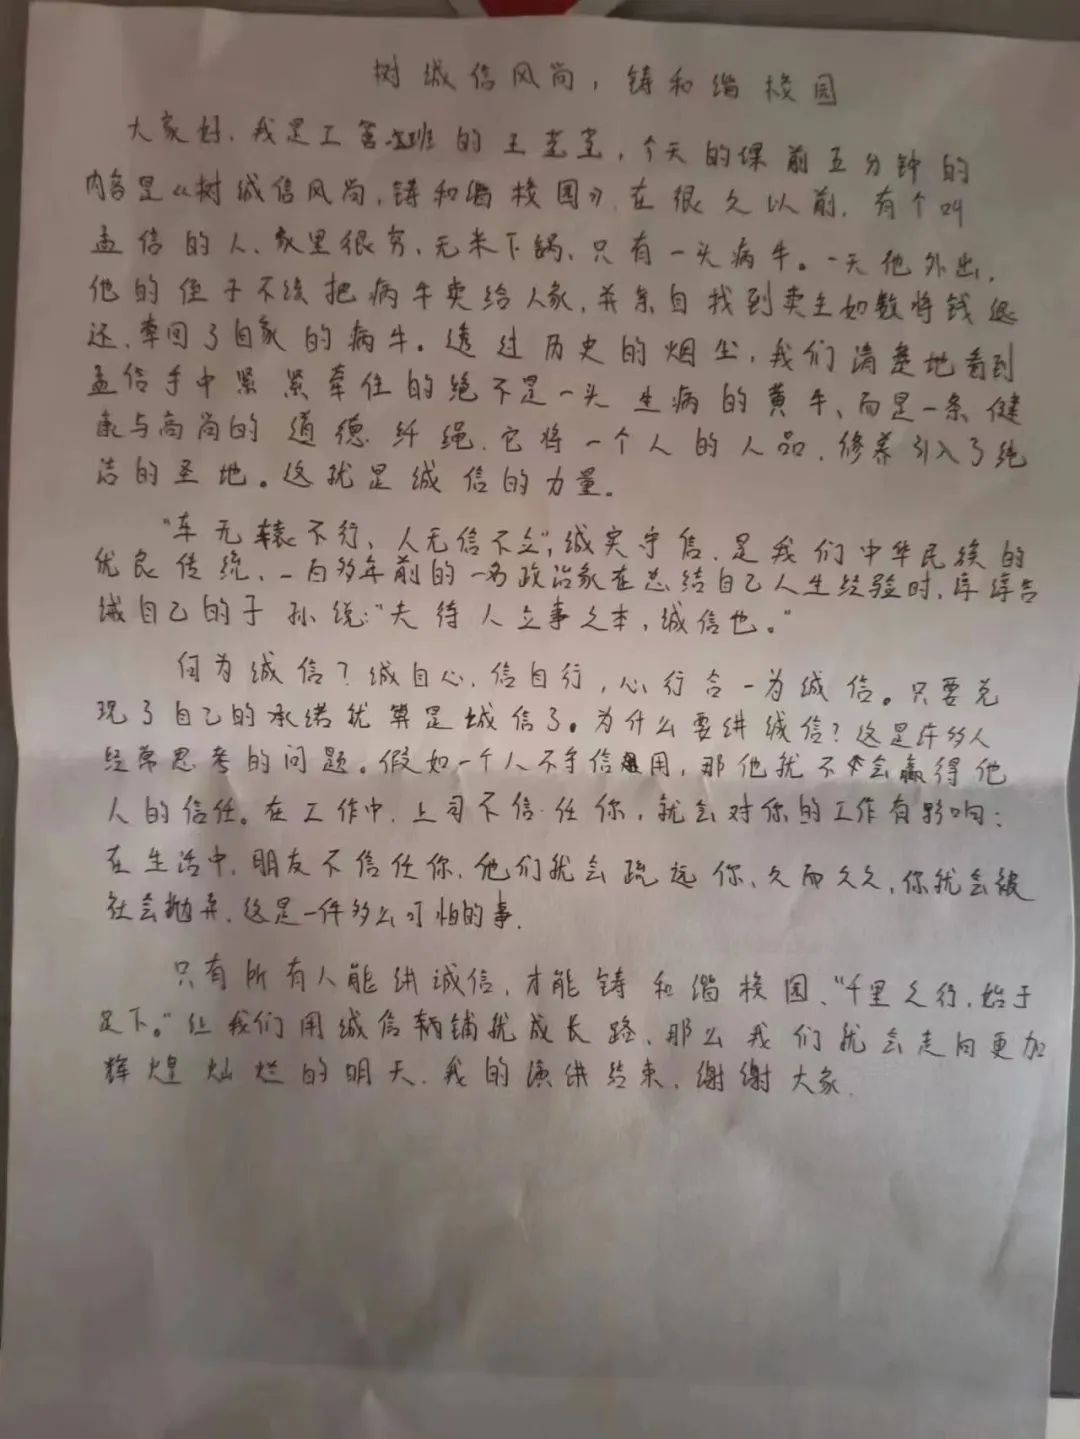 树诚信风尚，铸和谐校园
大家好，我是工管班的王莹莹，今天的课前五分钟的
内容是《树诚信风尚，铸和谐校园》，在很久以前，有个叫
孟信的人、家里很穷、无米下锅，只有一头病牛。一天他外出，
他的侄子不该把病牛卖给人家，并亲自找到卖主如数将钱退
还、牵回了自家的病牛。透过历史的烟尘，我们清楚地看到
孟信手中紧紧牵住的绝不是一头生病的黄牛、而是一条健
康与高尚的道德纤绳，它将一个人的人品，修养引入了纯
洁的圣地。这就是诚信的力量。
"车无辕不行，人无信不立"，诚实守信，是我们中华民族的
优良传统、一百多年前的一名政治家在总结自己人生经验时，谆谆告
诫自己的子孙说："夫待人立事之本，诚信也。"
何为诚信？诚自心，信自行，心行合一为诚信。只要兑
现了自己的承诺就算是诚信了。为什么要讲诚信？这是许多人
经常思考的问题。假如一个人不守信用，那他就不会赢得他
人的信任。在工作中，上司不信任你，就会对你的工作有影响；
在生活中，朋友不信任你，他们就会疏远你，久而久之，你就会被
社会抛弃，这是一件多么可怕的事.
只有所有人能讲诚信，才能铸和谐校园、"千里之行，始于
足下。"让我们用诚信铺就成长路、那么我们就会走向更加
辉煌灿烂的明天，我的演讲结束，谢谢大家.